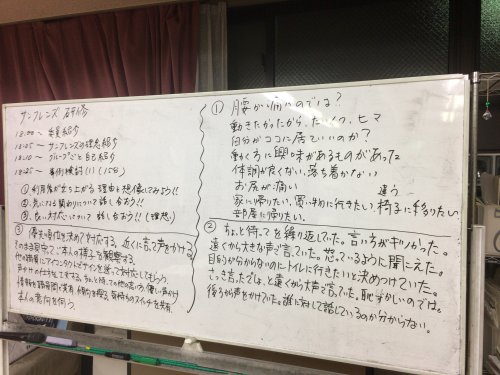 サンフレンズ 研修
18:00～ 委員紹介
18:05～ サンフレンズの理念紹介
18:10～ グループごと自己紹介
18:25～ 事例検討(1)(15分)
① 利用者が立ち上がる理由を想像してみよう!!
② 気になる関わりについて話し合おう!!
③ 良い対応について話し合おう!!(理想)
③ 優先順位を決めて対応する。近くに言って声をかける。
その場面でご本人の様子を観察する。
他の職員にアイコンタクトでサインを送って対応してもらう。
声かけの仕方を工夫する。ちょっと待っての他の言い方。優しい声かけ
情報を職員間で共有 傾向を探る。気持ちのスイッチを共有
本人の意向を伺う。
① 腰が痛いのでは?
動きたかったから、たいくつ、ヒマ
自分がココに居ていいのか?
動く先に興味があるものがあった
体調が良くない、落ち着かない
お尻が痛い
家に帰りたい、買い物に行きたい、違う椅子に移りたい
部屋に帰りたい。
② ちょと待ってを繰り返していた。言い方がキツかった。
遠くから大きな声で言っていた。怒っているように聞こえた。
目的が分からないのにトイレに行きたいと決めつけていた。
さっき言ったでしょ、と遠くから大声で言っていた。恥ずかしいのでは。
後ろから声をかけていた。誰に対して話しているのか分からない。